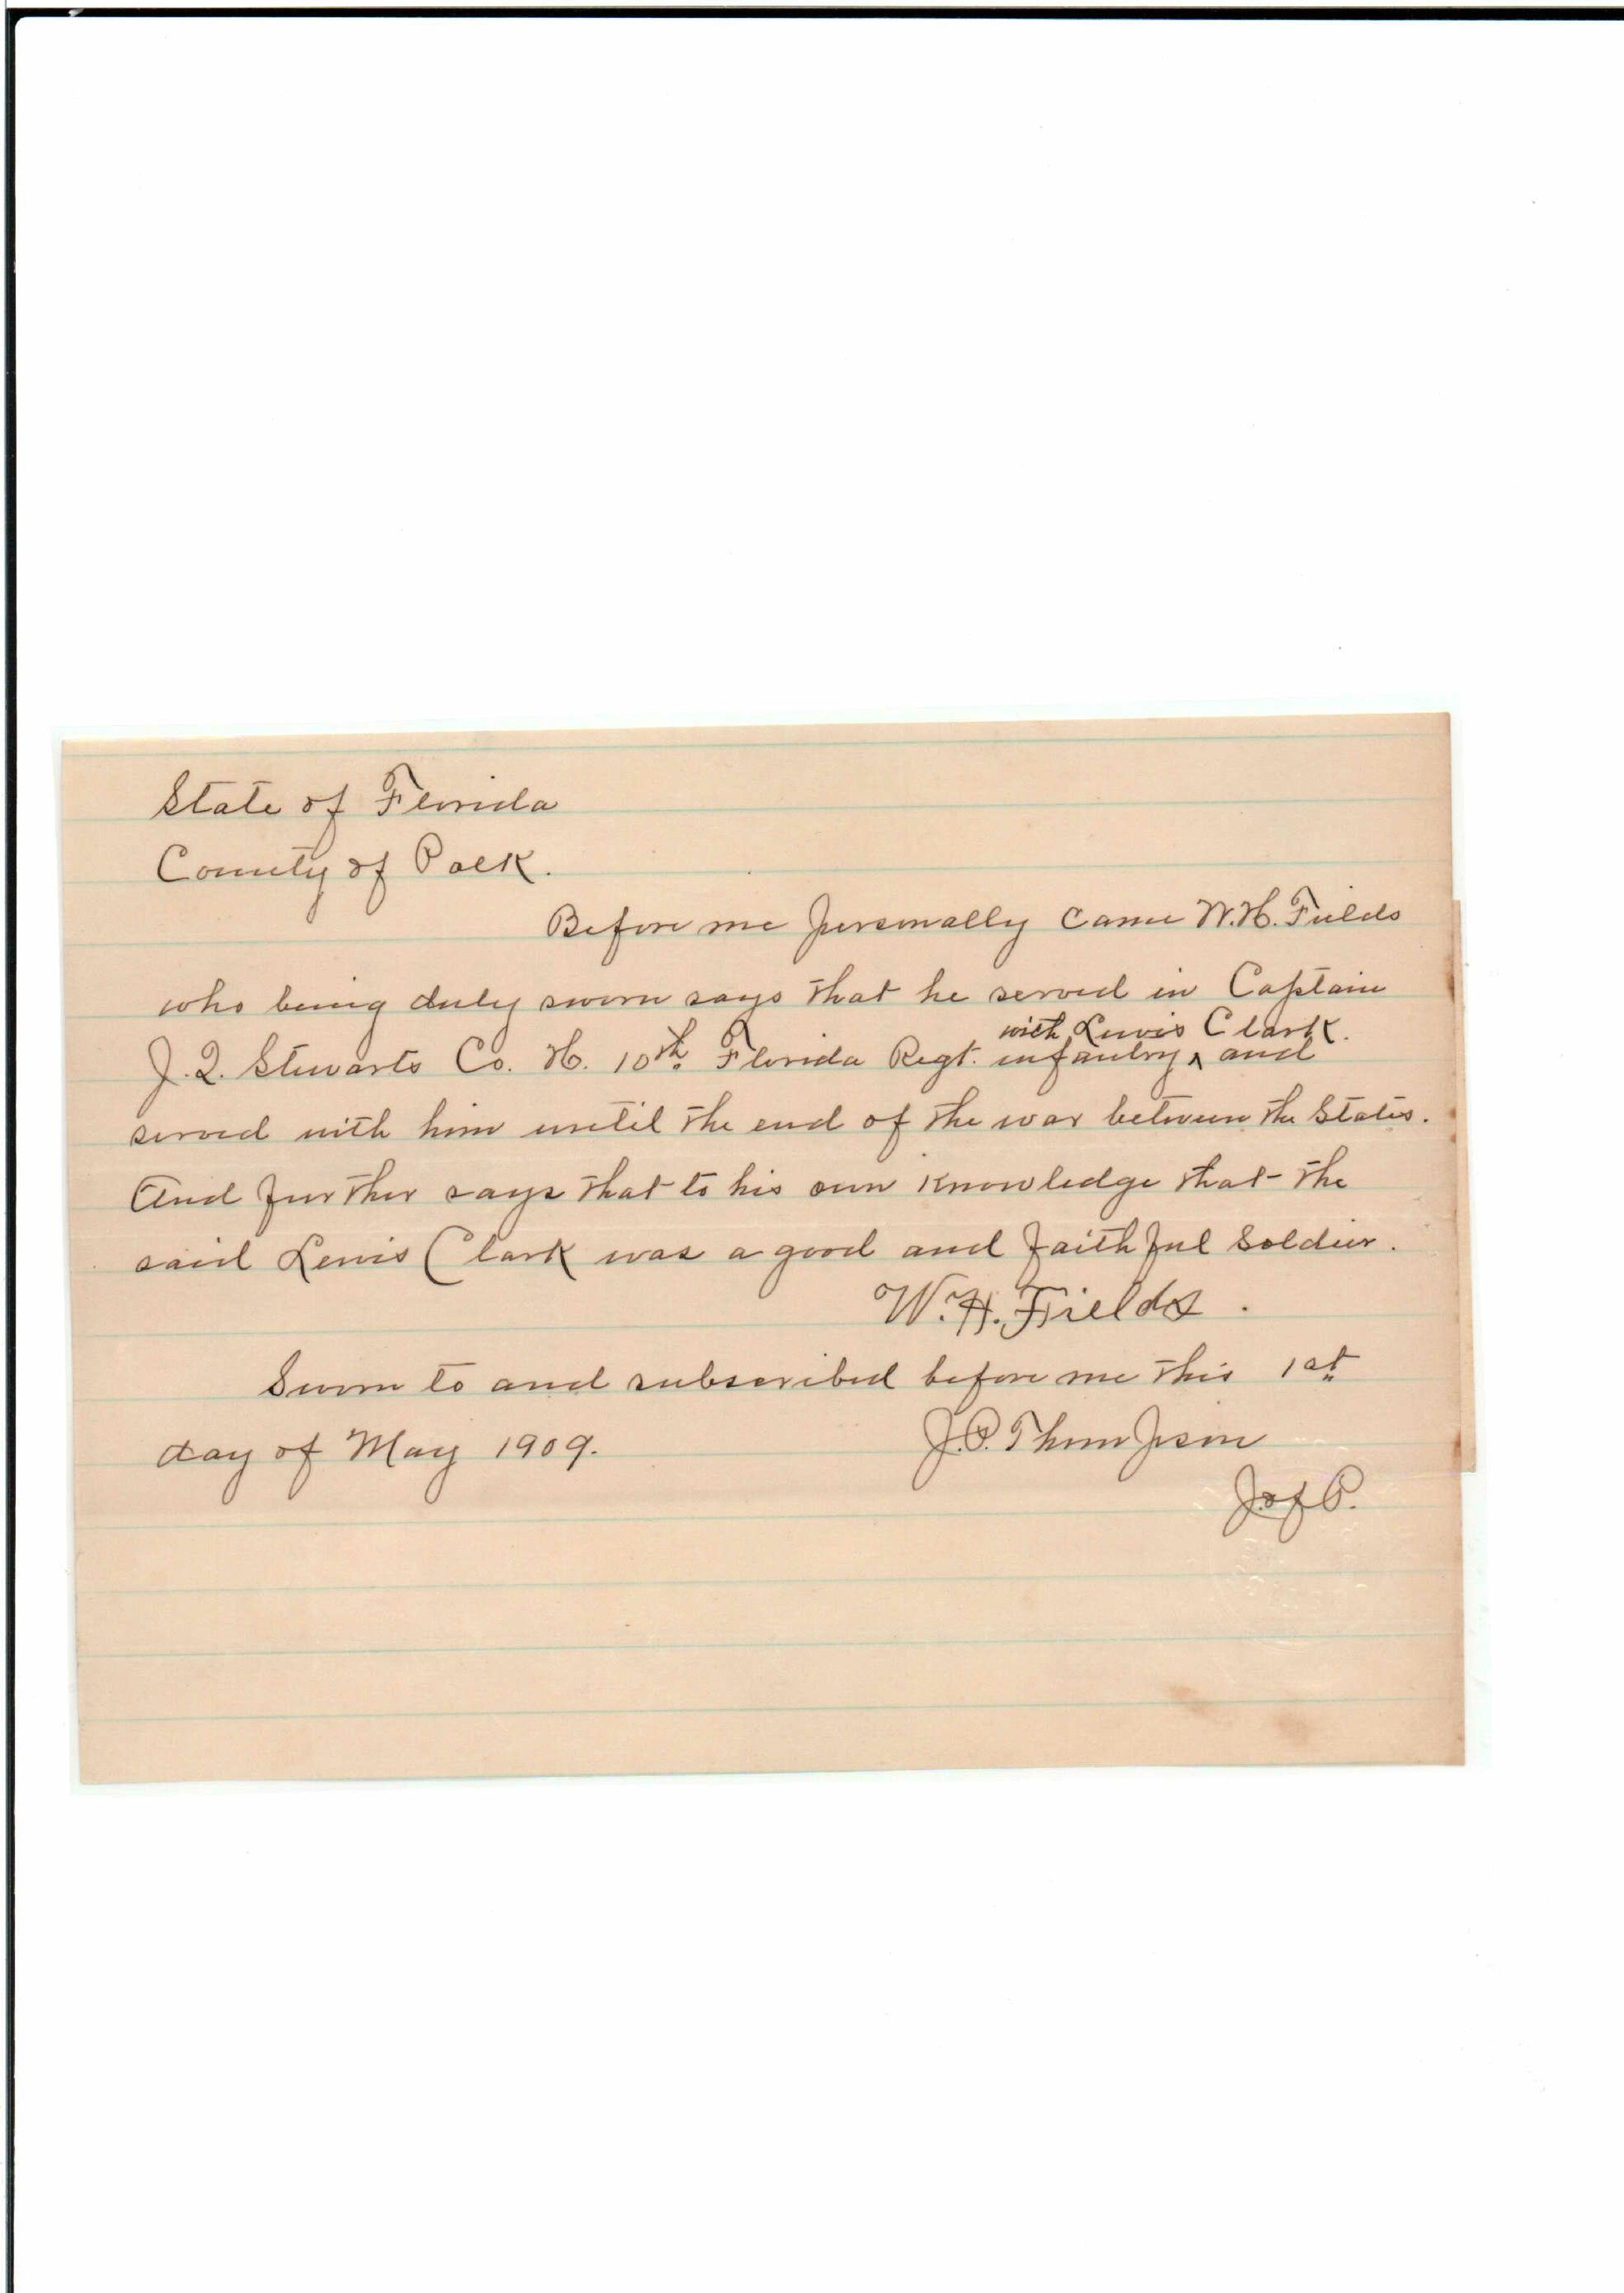 State of Florida
County of Polk.
Before me personally came W.H. Fields
who being duly sworn says that he served in Captain
with Lewis Clark.
J.Q. Stewarts Co. H. 10th Florida Regt. infantry ^ and
served with him until the end of the war between the States.
And further says that to his own knowledge that the
said Lewis Clark was a good and faithful soldier.
W.H. Fields.
Sworn to and subscribed before me this 1st
day of May 1909. J.P. Thompson
J. of P.